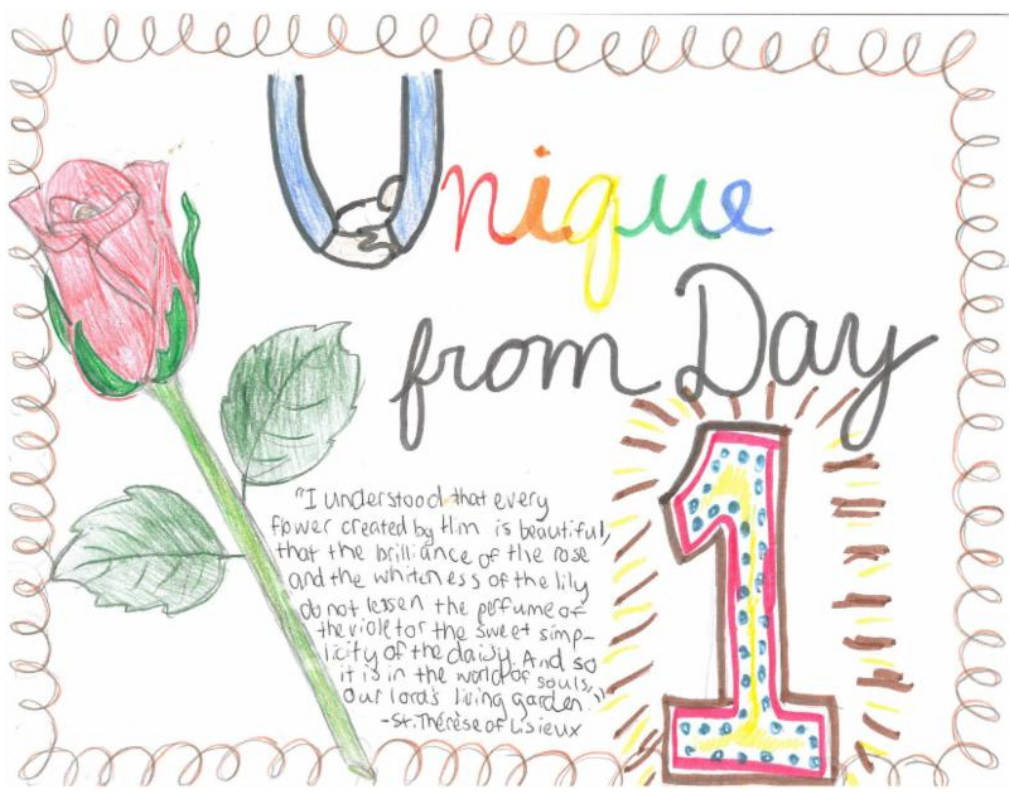 Unique
from Day
1
"I understood that every
flower created by Him is beautiful,
that the brilliance of the rose
and the whiteness of the lily
do not lessen the perfume of
the violet or the sweet simp-
licity of the daisy. And so
it is in the world of souls,
Our lord's living garden."
-St. Thérèse of Lisieux